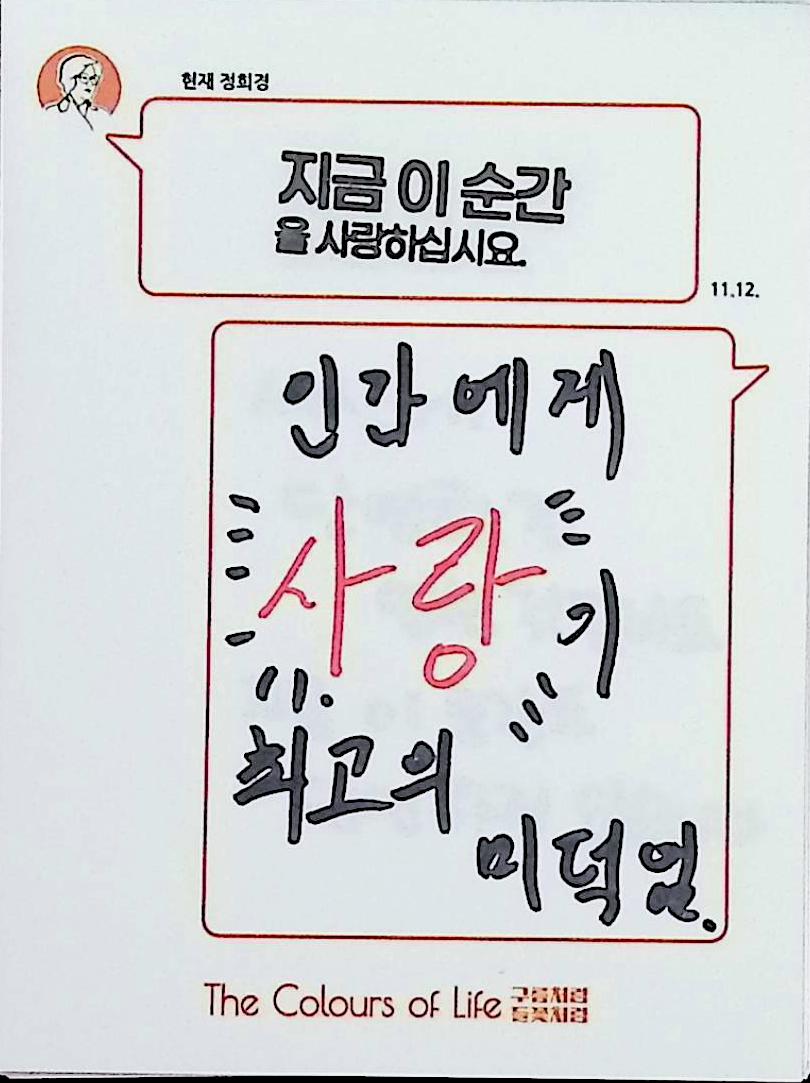 현재 정희경
지금 이 순간
을 사랑하십시요.
11.12.
인간에게
사랑기
최고의
미덕일.
The Colours of Life 구름처럼
들꽃처럼